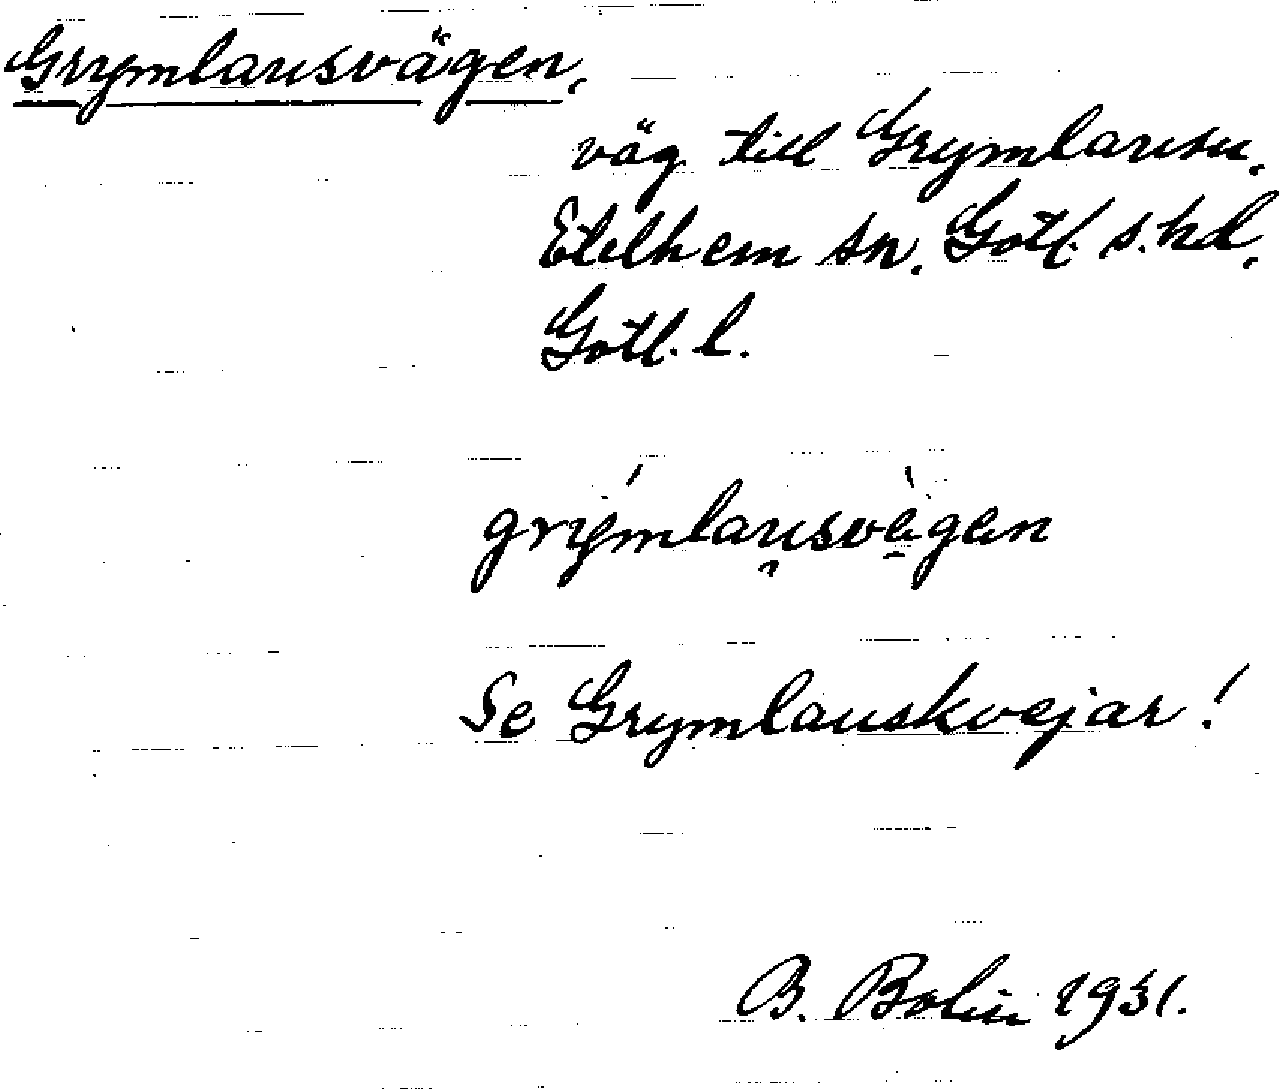 Grymlausvägen,
väg till Grymlausu,
Etelhem sn, Gotl. s. hd,
Gotl. l.
grýmlau̯svè̠gen
Se Grymlauskvejar!
B. Bolin 1931.